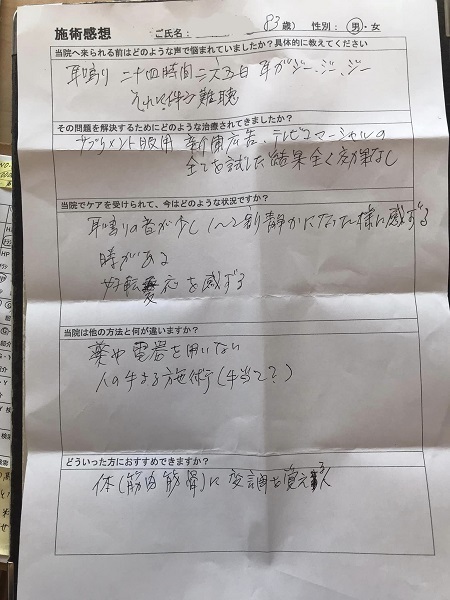 施術感想 ご氏名: 83歳) 性別: 男・女
当院へ来られる前はどのような声で悩まれていましたか?具体的に教えてください
耳鳴り 二十四時間 耳がジー、ジー、ジー
それに伴う難聴
その問題を解決するためにどのような治療されてきましたか?
サプリメント服用 新聞広告、テレビコマーシャルの
全てを試した結果全く効果なし
当院でケアを受けられて、今はどのような状況ですか?
耳鳴りの音が少し 1〜2割静かになった様に感ずる
時がある
好転変応を感ずる
当院は他の方法と何が違いますか?
薬や電器を用いない
人の手よる施術(手当て?)
どういった方におすすめできますか?
体(筋肉筋骨)に変調を覚える人